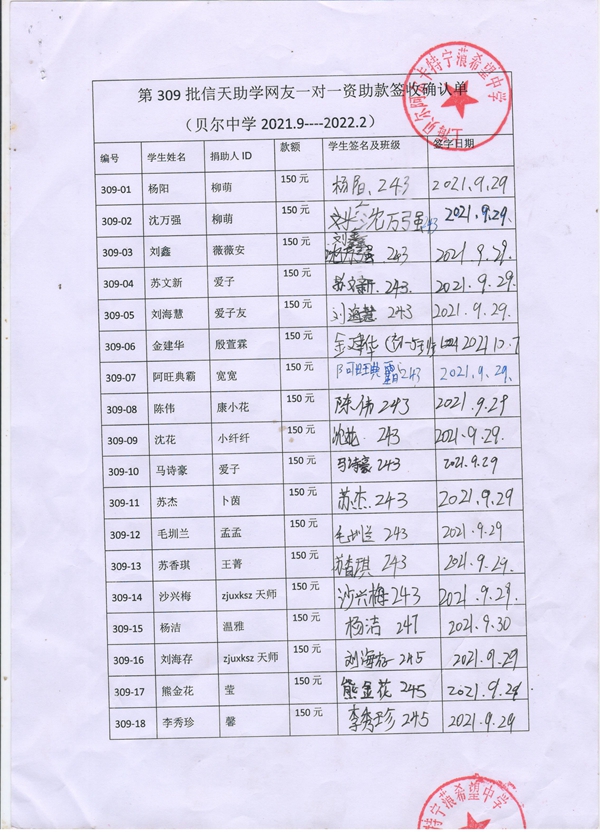 第 309 批信天助学网友一对一资助款签收确认单
（贝尔中学 2021.9----2022.2）
编号 学生姓名 捐助人 ID 款额 学生签名及班级 签字日期
309-01 杨阳 柳萌 150 元 杨阳 243 2021.9.29
309-02 沈万强 柳萌 150 元 沈万强 243 2021.9.29.
309-03 刘鑫 薇薇安 150 元 刘鑫 243 2021.9.29.
309-04 苏文新 爱子 150 元 苏文新 243 2021.9.29.
309-05 刘海慧 爱子友 150 元 刘海慧 243 2021.9.29
309-06 金建华 殷萱霖 150 元 金建华
309-07 阿旺典霸 宽宽 150 元 阿旺典霸 243 2021.9.29.
309-08 陈伟 康小花 150 元 陈伟 243 2021.9.29
309-09 沈花 小纤纤 150 元 沈花 243 2021.9.29.
309-10 马诗豪 爱子 150 元 马诗豪 243 2021.9.29
309-11 苏杰 卜茵 150 元 苏杰 243 2021.9.29
309-12 毛圳兰 孟孟 150 元 毛圳兰 243 2021.9.29
309-13 苏香琪 王菁 150 元 苏香琪 243 2021.9.29.
309-14 沙兴梅 zjuxksz 天师 150 元 沙兴梅 243 2021.9.29.
309-15 杨洁 温雅 150 元 杨洁 247 2021.9.30
309-16 刘海存 zjuxksz 天师 150 元 刘海存 245 2021.9.29
309-17 熊金花 莹 150 元 熊金花 245 2021.9.29
309-18 李秀珍 馨 150 元 李秀珍 245 2021.9.29